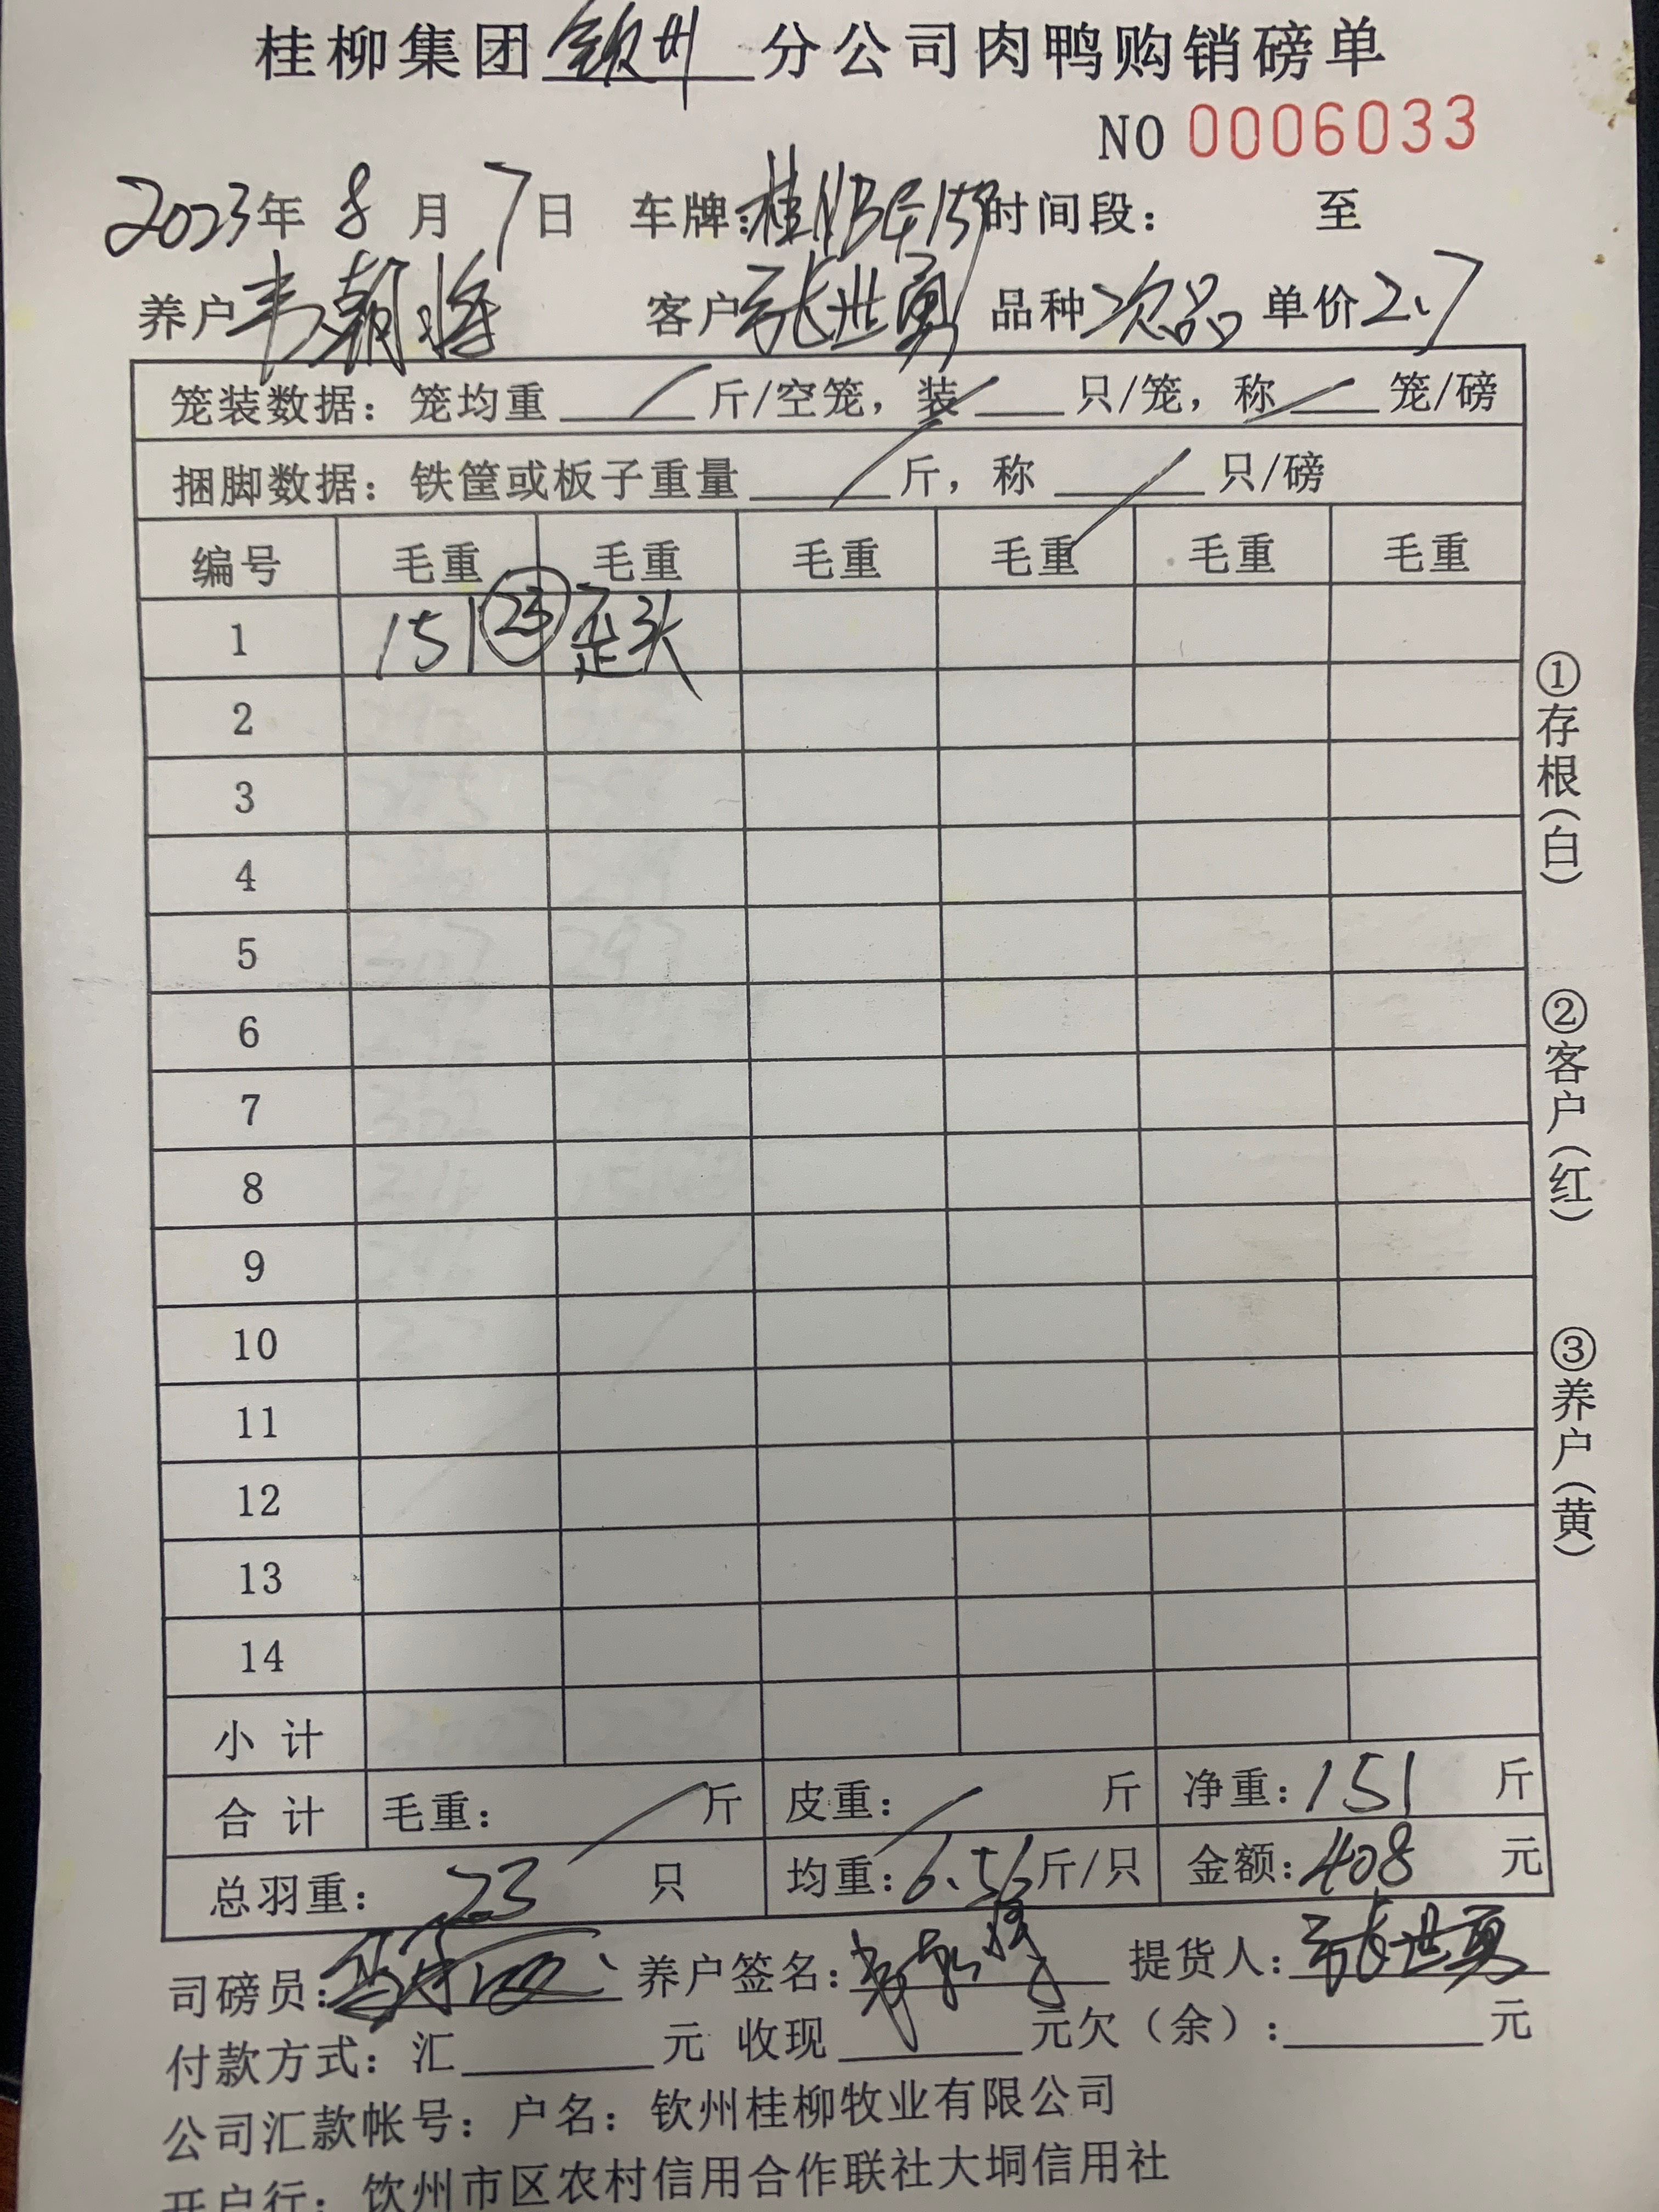 桂柳集团钦州分公司肉鸭购销磅单
NO 0006033
2023年 8 月 7日 车牌: 时间段: 至
养户韦朝将 客户张世勇 品种次品 单价2.7
笼装数据: 笼均重 / 斤/空笼, 装 / 只/笼, 称 / 笼/磅
捆脚数据: 铁筐或板子重量 / 斤, 称 / 只/磅
编号 毛重 毛重 毛重 毛重 毛重 毛重
1 151 23 歪头
2
3
4
5
6
7
8
9
10
11
12
13
14
小计
合计 毛重: / 斤 皮重: / 斤 净重: 151 斤
总羽重: 23 只 均重: 6.56斤/只 金额: 408 元
司磅员: 养户签名: 提货人: 张世勇
付款方式: 汇 元 收现 元欠(余): 元
公司汇款帐号: 户名: 钦州桂柳牧业有限公司
开户行: 钦州市区农村信用合作联社大垌信用社
①存根(白)
②客户(红)
③养户(黄)